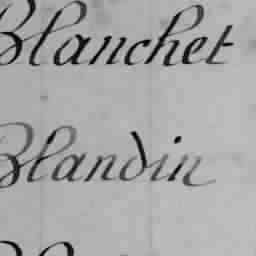 Blanchet
Blandin